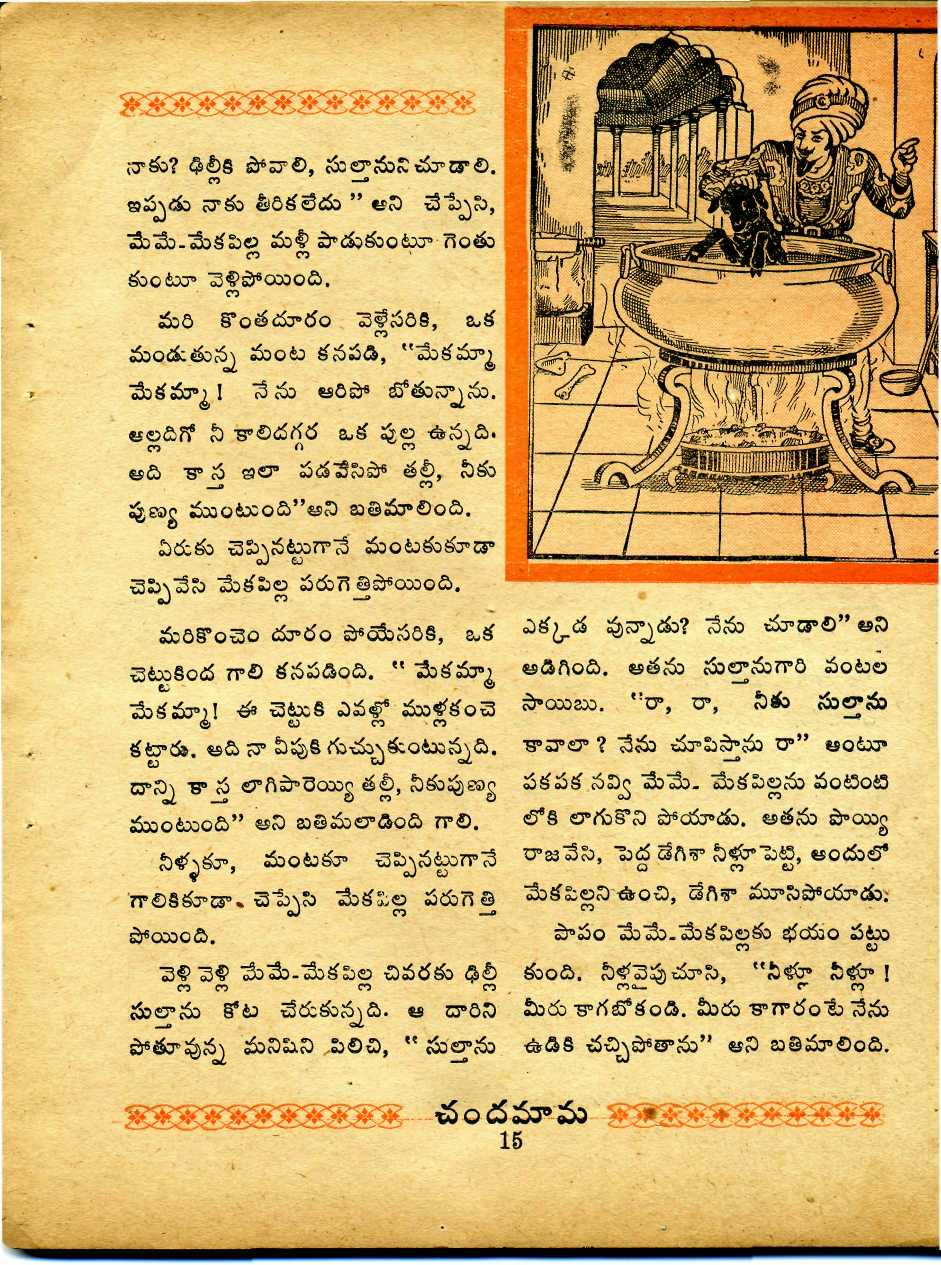 నాకు? ఢిల్లీకి పోవాలి, సుల్తానుని చూడాలి.
ఇప్పడు నాకు తీరికలేదు" అని చేప్పేసి,
మేమే-మేకపిల్ల మళ్లీ పాడుకుంటూ గెంతు
కుంటూ వెళ్లిపోయింది.
మరి కొంతదూరం వెళ్లేసరికి, ఒక
మండుతున్న మంట కనపడి, "మేకమ్మా
మేకమ్మా! నేను ఆరిపో బోతున్నాను.
అల్లదిగో నీ కాలిదగ్గర ఒక పుల్ల ఉన్నది.
అది కాస్త ఇలా పడవేసిపో తల్లీ, నీకు
పుణ్య ముంటుంది" అని బతిమాలింది.
ఏరుకు చెప్పినట్టుగానే మంటకుకూడా
చెప్పివేసి మేకపిల్ల పరుగెత్తిపోయింది.
మరికొంచెం దూరం పోయేసరికి, ఒక
చెట్టుకింద గాలి కనపడింది. "మేకమ్మా
మేకమ్మా! ఈ చెట్టుకి ఎవళ్లో ముళ్లకంచె
కట్టారు. అది నా వీపుకి గుచ్చుకుంటున్నది.
దాన్ని కాస్త లాగిపారెయ్యి తల్లీ, నీకుపుణ్య
ముంటుంది" అని బతిమలాడింది గాలి.
నీళ్ళకూ, మంటకూ చెప్పినట్టుగానే
గాలికికూడా చెప్పేసి మేకపిల్ల పరుగెత్తి
పోయింది.
వెళ్లి వెళ్లి మేమే-మేకపిల్ల చివరకు ఢిల్లీ
సుల్తాను కోట చేరుకున్నది. ఆ దారిని
పోతూవున్న మనిషిని పిలిచి, "సుల్తాను
ఎక్కడ వున్నాడు? నేను చూడాలి" అని
అడిగింది. అతను సుల్తానుగారి వంటల
సాయిబు. "రా, రా, నీకు సుల్తాను
కావాలా? నేను చూపిస్తాను రా" అంటూ
పకపక నవ్వి మేమే-మేకపిల్లను వంటింటి
లోకి లాగుకొని పోయాడు. అతను పొయ్యి
రాజవేసి, పెద్ద డేగిశా నీళ్లూ పెట్టి, అందులో
మేకపిల్లని ఉంచి, డేగిశా మూసిపోయాడు.
పాపం మేమే-మేకపిల్లకు భయం పట్టు
కుంది. నీళ్లవైపుచూసి, "నీళ్లూ నీళ్లూ!
మీరు కాగబోకండి. మీరు కాగారంటే నేను
ఉడికి చచ్చిపోతాను" అని బతిమాలింది.
చందమామ
15